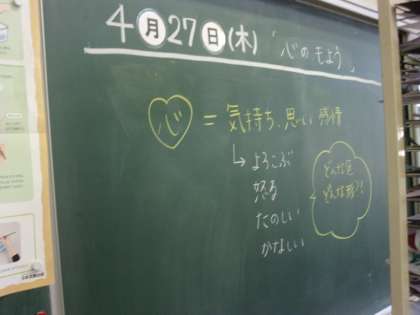 4月27日(木)「心のもよう」
心 = 気持ち、思い、感情
↳ よろこぶ
怒る
たのしい
かなしい
どんな色
どんな形?!